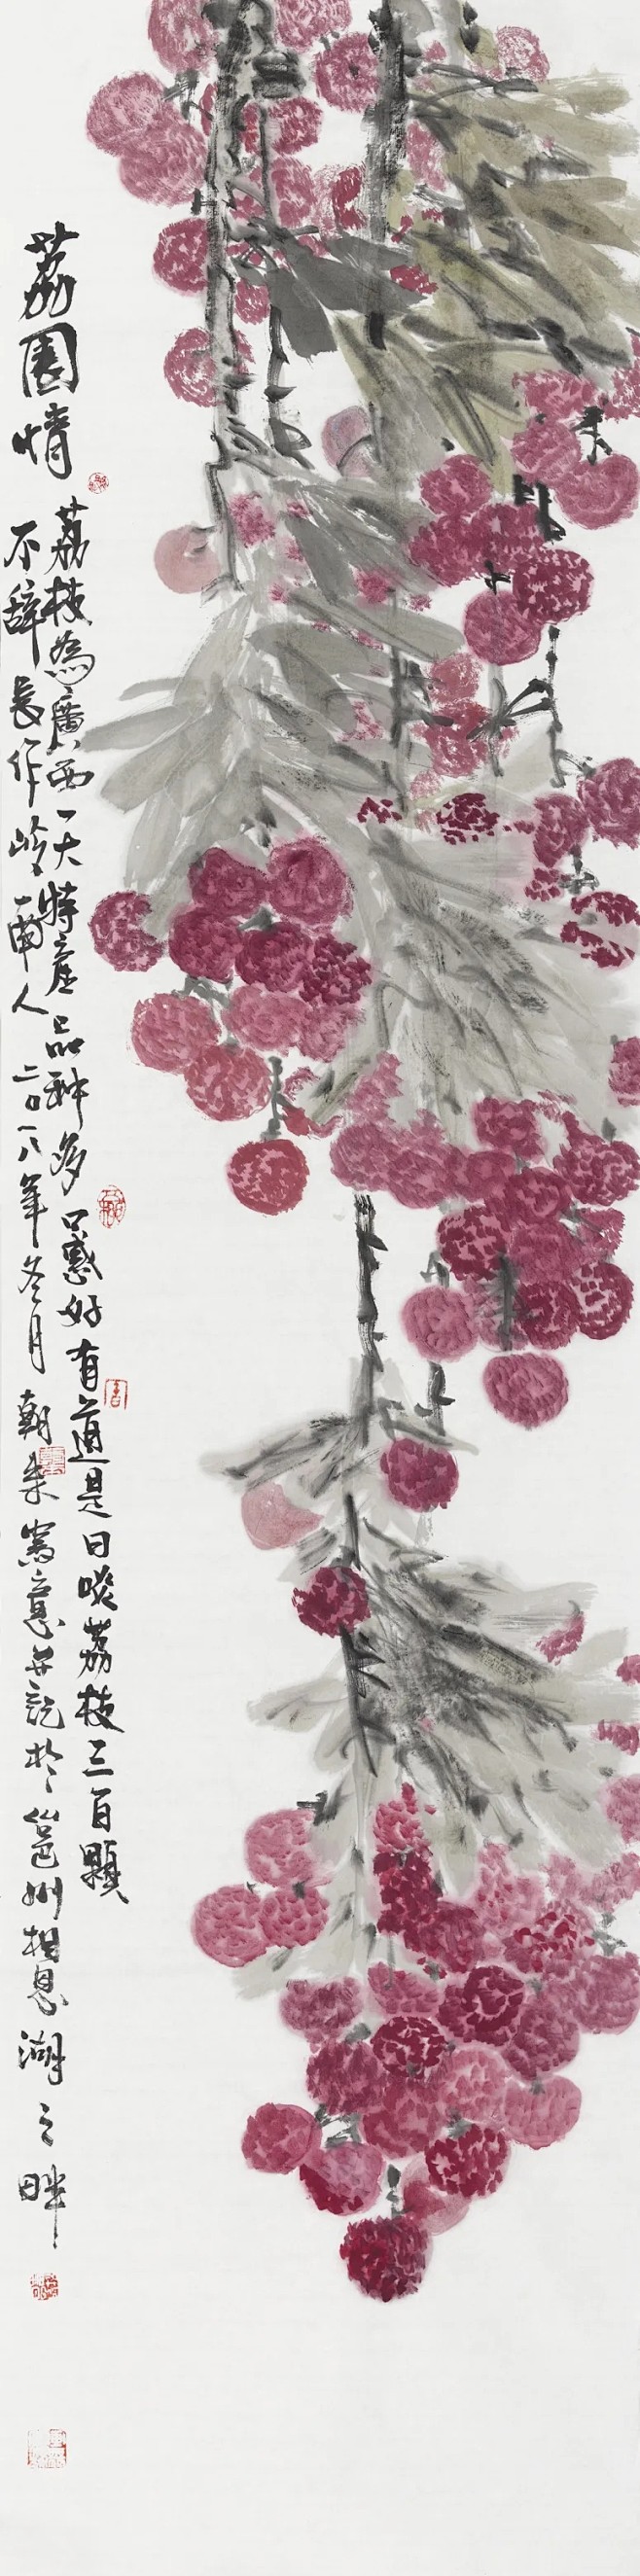 荔園情
荔枝為廣西一大特產品种多口感好有道是日啖荔枝三百顆
不辞長作岭南人二〇一八年冬月朝东寫意并記於邕州相思湖之畔